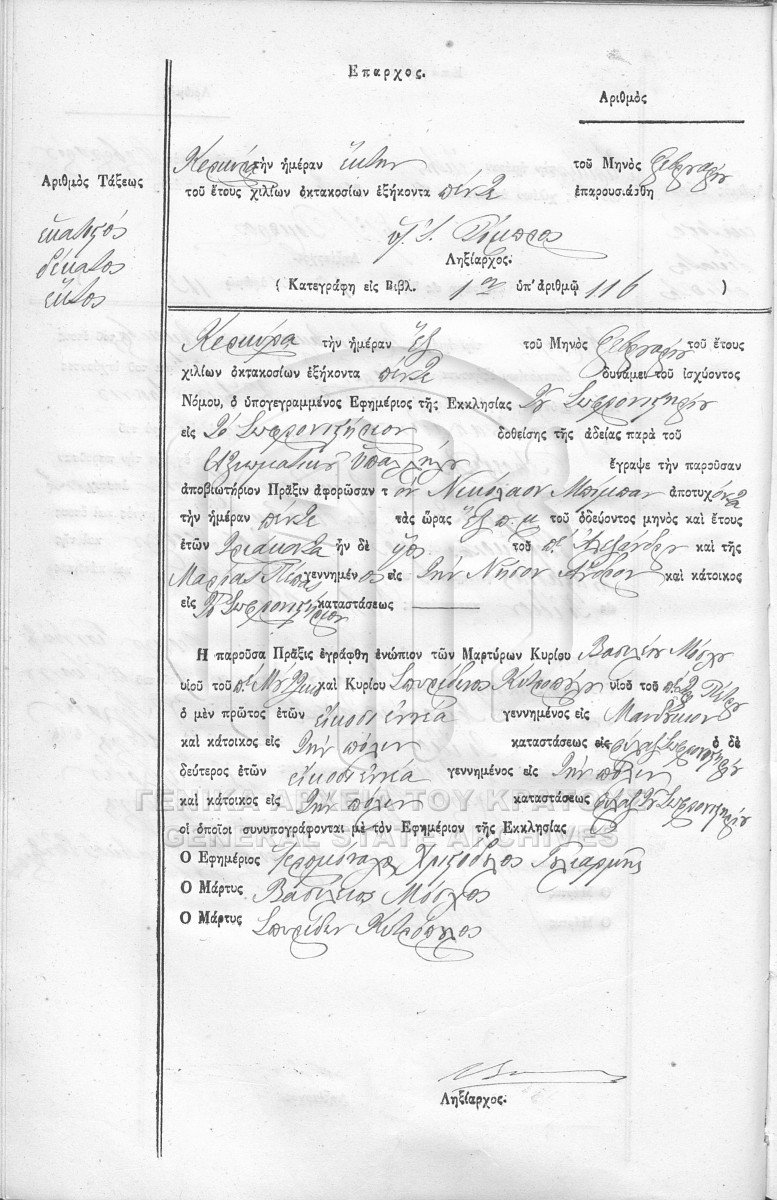 Επαρχος.
Αριθμὸς
Αριθμὸς Τάξεως
ἑκατοστός
δέκατος
ἕκτος
Κερκύρᾳ τὴν ἡμέραν ἕκτην τοῦ Μηνὸς Φεβρουαρίου
τοῦ ἔτους χιλίων ὀκτακοσίων ἑξήκοντα πέντε ἐπαρουσιάσθη
Ληξίαρχος.
( Κατεγράφη εἰς Βιβλ. 1ον ὑπ' ἀριθμῷ 116 )
Κερκύρᾳ τὴν ἡμέραν ἓξ τοῦ Μηνὸς Φεβρουαρίου τοῦ ἔτους
χιλίων ὀκτακοσίων ἑξήκοντα πέντε δυνάμει τοῦ ἰσχύοντος
Νόμου, ὁ ὑπογεγραμμένος Ἐφημέριος τῆς Εκκλησίας τοῦ Σωφρονιστηρίου
εἰς τὸ Σωφρονιστήριον δοθείσης τῆς ἀδείας παρὰ τοῦ
Ἀξιωματικοῦ Ὑπαλλήλου ἔγραψε τὴν παροῦσαν
ἀποβιωτήριον Πρᾶξιν ἀφορῶσαν τὸν Νικόλαον Μπίμπαν ἀποτυχόντα
τὴν ἡμέραν πέντε τὰς ὥρας ἓξ π.μ. τοῦ ὁδεύοντος μηνὸς καὶ ἔτους
ἐτῶν τριάκοντα ἦν δὲ υἱὸς τοῦ π. Ἀλεξάνδρου καὶ τῆς
Μαρίας Πίπας γεννημένος εἰς τὴν Νῆσον Ἄνδρον καὶ κάτοικος
εἰς τὸ Σωφρονιστήριον καταστάσεως
Η παροῦσα Πρᾶξις ἐγράφθη ἐνώπιον τῶν Μαρτύρων Κυρίου Βασιλείου Μόσχου
υἱοῦ τοῦ π. καὶ Κυρίου Σπυρίδωνος Κιτροπούλου υἱοῦ τοῦ π. Πέτρου
ὁ μὲν πρῶτος ἐτῶν εἰκοσιεννέα γεννημένος εἰς Μανδούκιον
καὶ κάτοικος εἰς τὴν πόλιν καταστάσεως εἰς φύλαξ Σωφρονιστηρίου ὁ δὲ
δεύτερος ἐτῶν εἰκοσιεννέα γεννημένος εἰς τὴν πόλιν
καὶ κάτοικος εἰς τὴν πόλιν καταστάσεως φύλαξ τοῦ Σωφρονιστηρίου
οἱ ὁποῖοι συνυπογράφονται μὲ τὸν Ἐφημέριον τῆς Ἐκκλησίας
Ο Ἐφημέριος Ἱερομόναχος Χριστόδουλος
Ο Μάρτυς Βασίλειος Μόσχος
Ο Μάρτυς Σπυρίδων Κιτρόπουλος
Ληξίαρχος.
ΓΕΝΙΚΑ ΑΡΧΕΙΑ ΤΟΥ ΚΡΑΤΟΥΣ
GENERAL STATE ARCHIVES